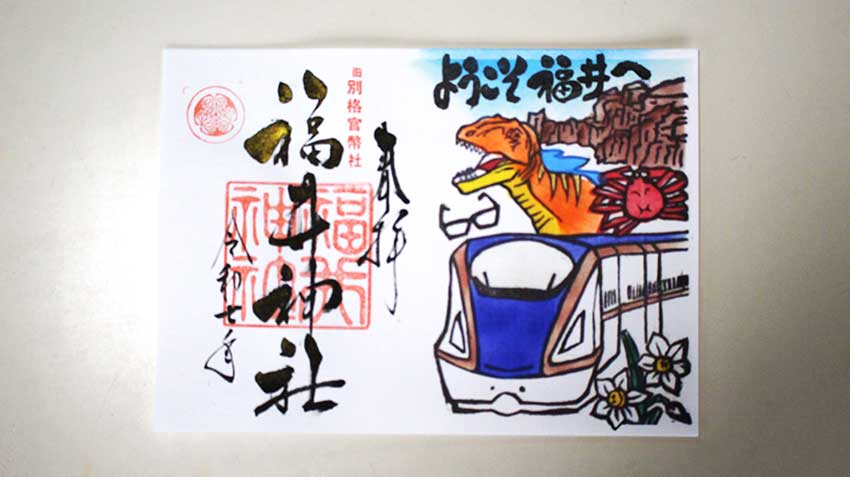 ようこそ福井へ
奉拝
旧別格官幣社
福井神社
福井神社
令和七年